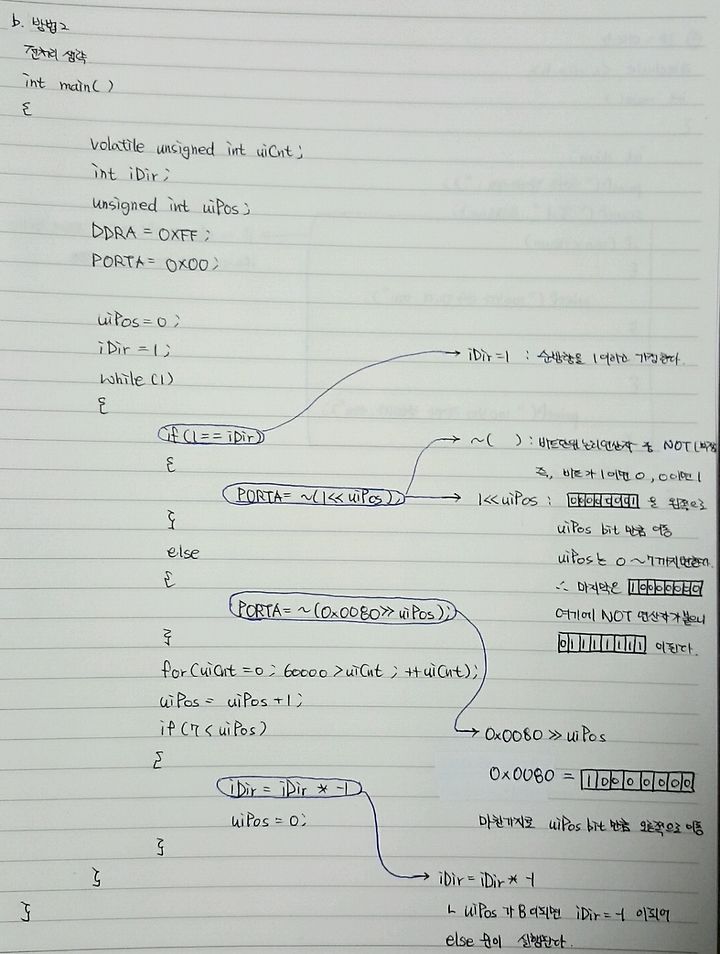 b. 방법2
전처리 생략
int main( )
{
volatile unsigned int uiCnt;
int iDir;
unsigned int uiPos;
DDRA = 0XFF;
PORTA = 0X00;
uiPos=0;
iDir =1;
while (1)
{
if (1 == iDir)
{
PORTA = ~(1<<uiPos);
}
else
{
PORTA= ~(0x0080>>uiPos);
}
for (uiCnt =0; 60000 >uiCnt ; ++uiCnt);
uiPos = uiPos +1;
if (7 < uiPos)
{
iDir = iDir * -1
uiPos = 0;
}
}
}
iDir =1 : 순방향을 1이라고 가정한다.
~( ) : 비트단위 논리연산자 중 NOT
즉, 비트가 1이면 0, 0이면 1
1<<uiPos : 00000001 을 왼쪽으로
uiPos bit 만큼 이동
uiPos는 0 ~ 7까지
∴ 마지막은 10000000
여기에 NOT 연산자가 붙으니
01111111 이 된다.
0x0080 >> uiPos
0x0080 = 10000000
마찬가지로 uiPos bit 만큼 오른쪽으로 이동
iDir = iDir * -1
ㄴ uiPos 가 8이되면 iDir = -1 이되어
else 문이 실행된다.